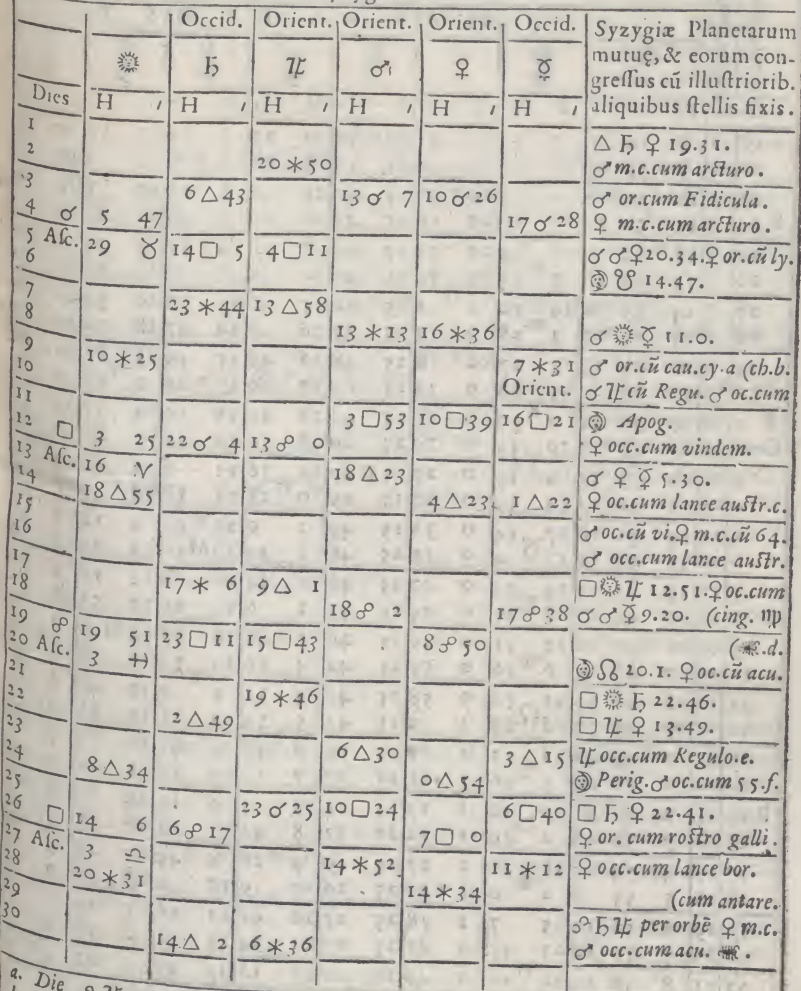 Occid. Orient. Orient. Orient. Occid. Syzygiæ Planetarum
☉ ♄ ♃ ♂ ♀ ☿ mutuę, & eorum con-
greſſus cũ illuſtriorib.
Dies H ′ H ′ H ′ H ′ H ′ H ′ aliquibus ſtellis fixis.
1 △ ♄ ♀ 19.31.
2 20 ⚹ 50 ♂ m.c.cum arcturo.
3 6 △ 43 13 ☌ 7 10 ☌ 26 ♂ or.cum Fidicula.
4 ☌ 5 47 17 ☌ 28 ♀ m.c.cum arcturo.
5 Aſc. 29 ♉ 14 □ 5 4 □ 11 ☌ ♂ ♀ 20.34.♀ or.cũ ly.
6 ☽ ☋ 14.47.
7 23 ⚹ 44 13 △ 58
8 13 ⚹ 13 16 ⚹ 36 ☌ ☉ ☿ 11.0.
9 10 ⚹ 25 7 ⚹ 31 ♂ or.cũ cau.cy.a (ch.b.
10 Orient. ☌ ♃ cũ Regu. ♂ oc.cum
11 3 □ 53 10 □ 39 16 □ 21 ☽ Apog.
12 □ 3 25 22 ☌ 4 13 ☍ 0 ♀ occ.cum vindem.
13 Aſc. 16 ♈ 18 △ 23 ☌ ♀ ☿ 5.30.
14 18 △ 55 4 △ 23 1 △ 22 ♀ oc.cum lance auſtr.c.
15 ♂ oc.cũ vi.♀ m.c.cũ 64.
16 ♂ occ.cum lance auſtr.
17 17 ⚹ 6 9 △ 1 □ ☉ ♃ 12.51.♀ oc.cum
18 18 ☍ 2 17 ☍ 38 ☌ ♂ ☿ 9.20. (cing. ♍
19 ☍ 19 51 23 □ 11 15 □ 43 8 ☍ 50 (♏.d.
20 Aſc. 3 ♓ ☽ ☊ 20.1. ♀ oc.cũ acu.
21 19 ⚹ 46 □ ☉ ♄ 22.46.
22 2 △ 49 □ ♃ ♀ 13.49.
23 6 △ 30 3 △ 15 ♃ occ.cum Regulo.e.
24 8 △ 34 0 △ 54 ☽ Perig.♂ oc.cum 55.f.
25 23 ☌ 25 10 □ 24 6 □ 40 □ ♄ ♀ 22.41.
26 □ 14 6 6 ☍ 17 7 □ 0 ♀ or. cum roſtro galli.
27 Aſc. 3 ♎ 14 ⚹ 52 11 ⚹ 12 ♀ occ.cum lance bor.
28 20 ⚹ 31 14 ⚹ 34 (cum antare.
29 ☍ ♄ ♃ per orbē ♀ m.c.
30 14 △ 2 6 ⚹ 36 ♂ occ.cum acu. ♏.
a. Die